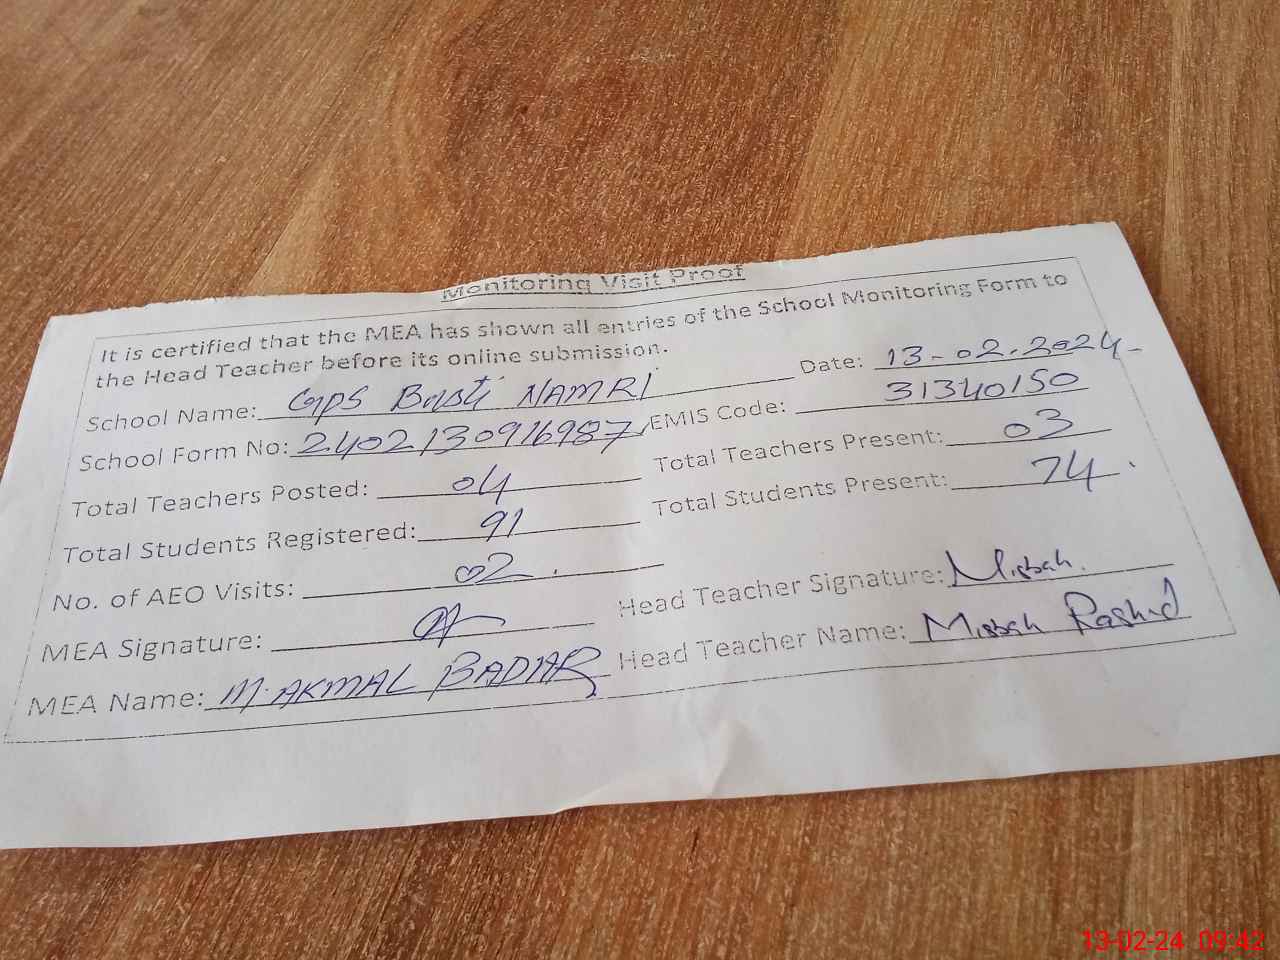 Monitoring Visit Proof
It is certified that the MEA has shown all entries of the School Monitoring Form to
the Head Teacher before its online submission.
Date: 13-02.2024-
School Name: GPS Basti NAMRI
EMIS Code: 31340150
School Form No: 2402130916987
Total Teachers Present: 03
Total Teachers Posted: 04
Total Students Present: 74.
Total Students Registered: 91
No. of AEO Visits: 02.
Head Teacher Signature: Misbah.
MEA Signature:
Head Teacher Name: Misbah Rashid
MEA Name: M. AKMAL BADAR
13-02-24 09:42